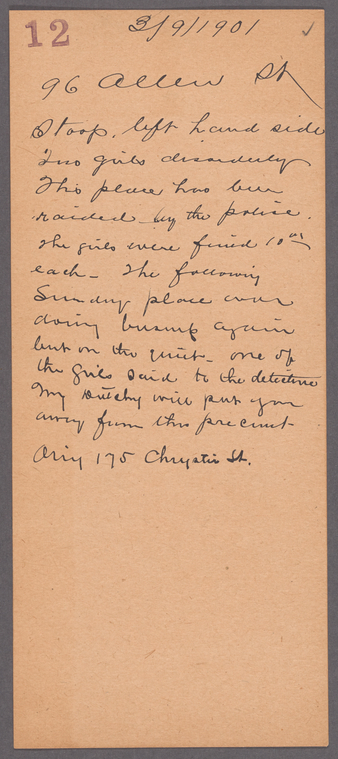 12
3/9/1901 ✓
96 Allen St
Stoop. left hand side
Two girls disorderly
This place has been
raided by the police.
The girls were fined 10 00
each - The following
Sunday place was
doing busines again
but on the quiet - one of
the girls said to the detective
My Dutchy will put you
away from this precinct
175 Chrystie St.